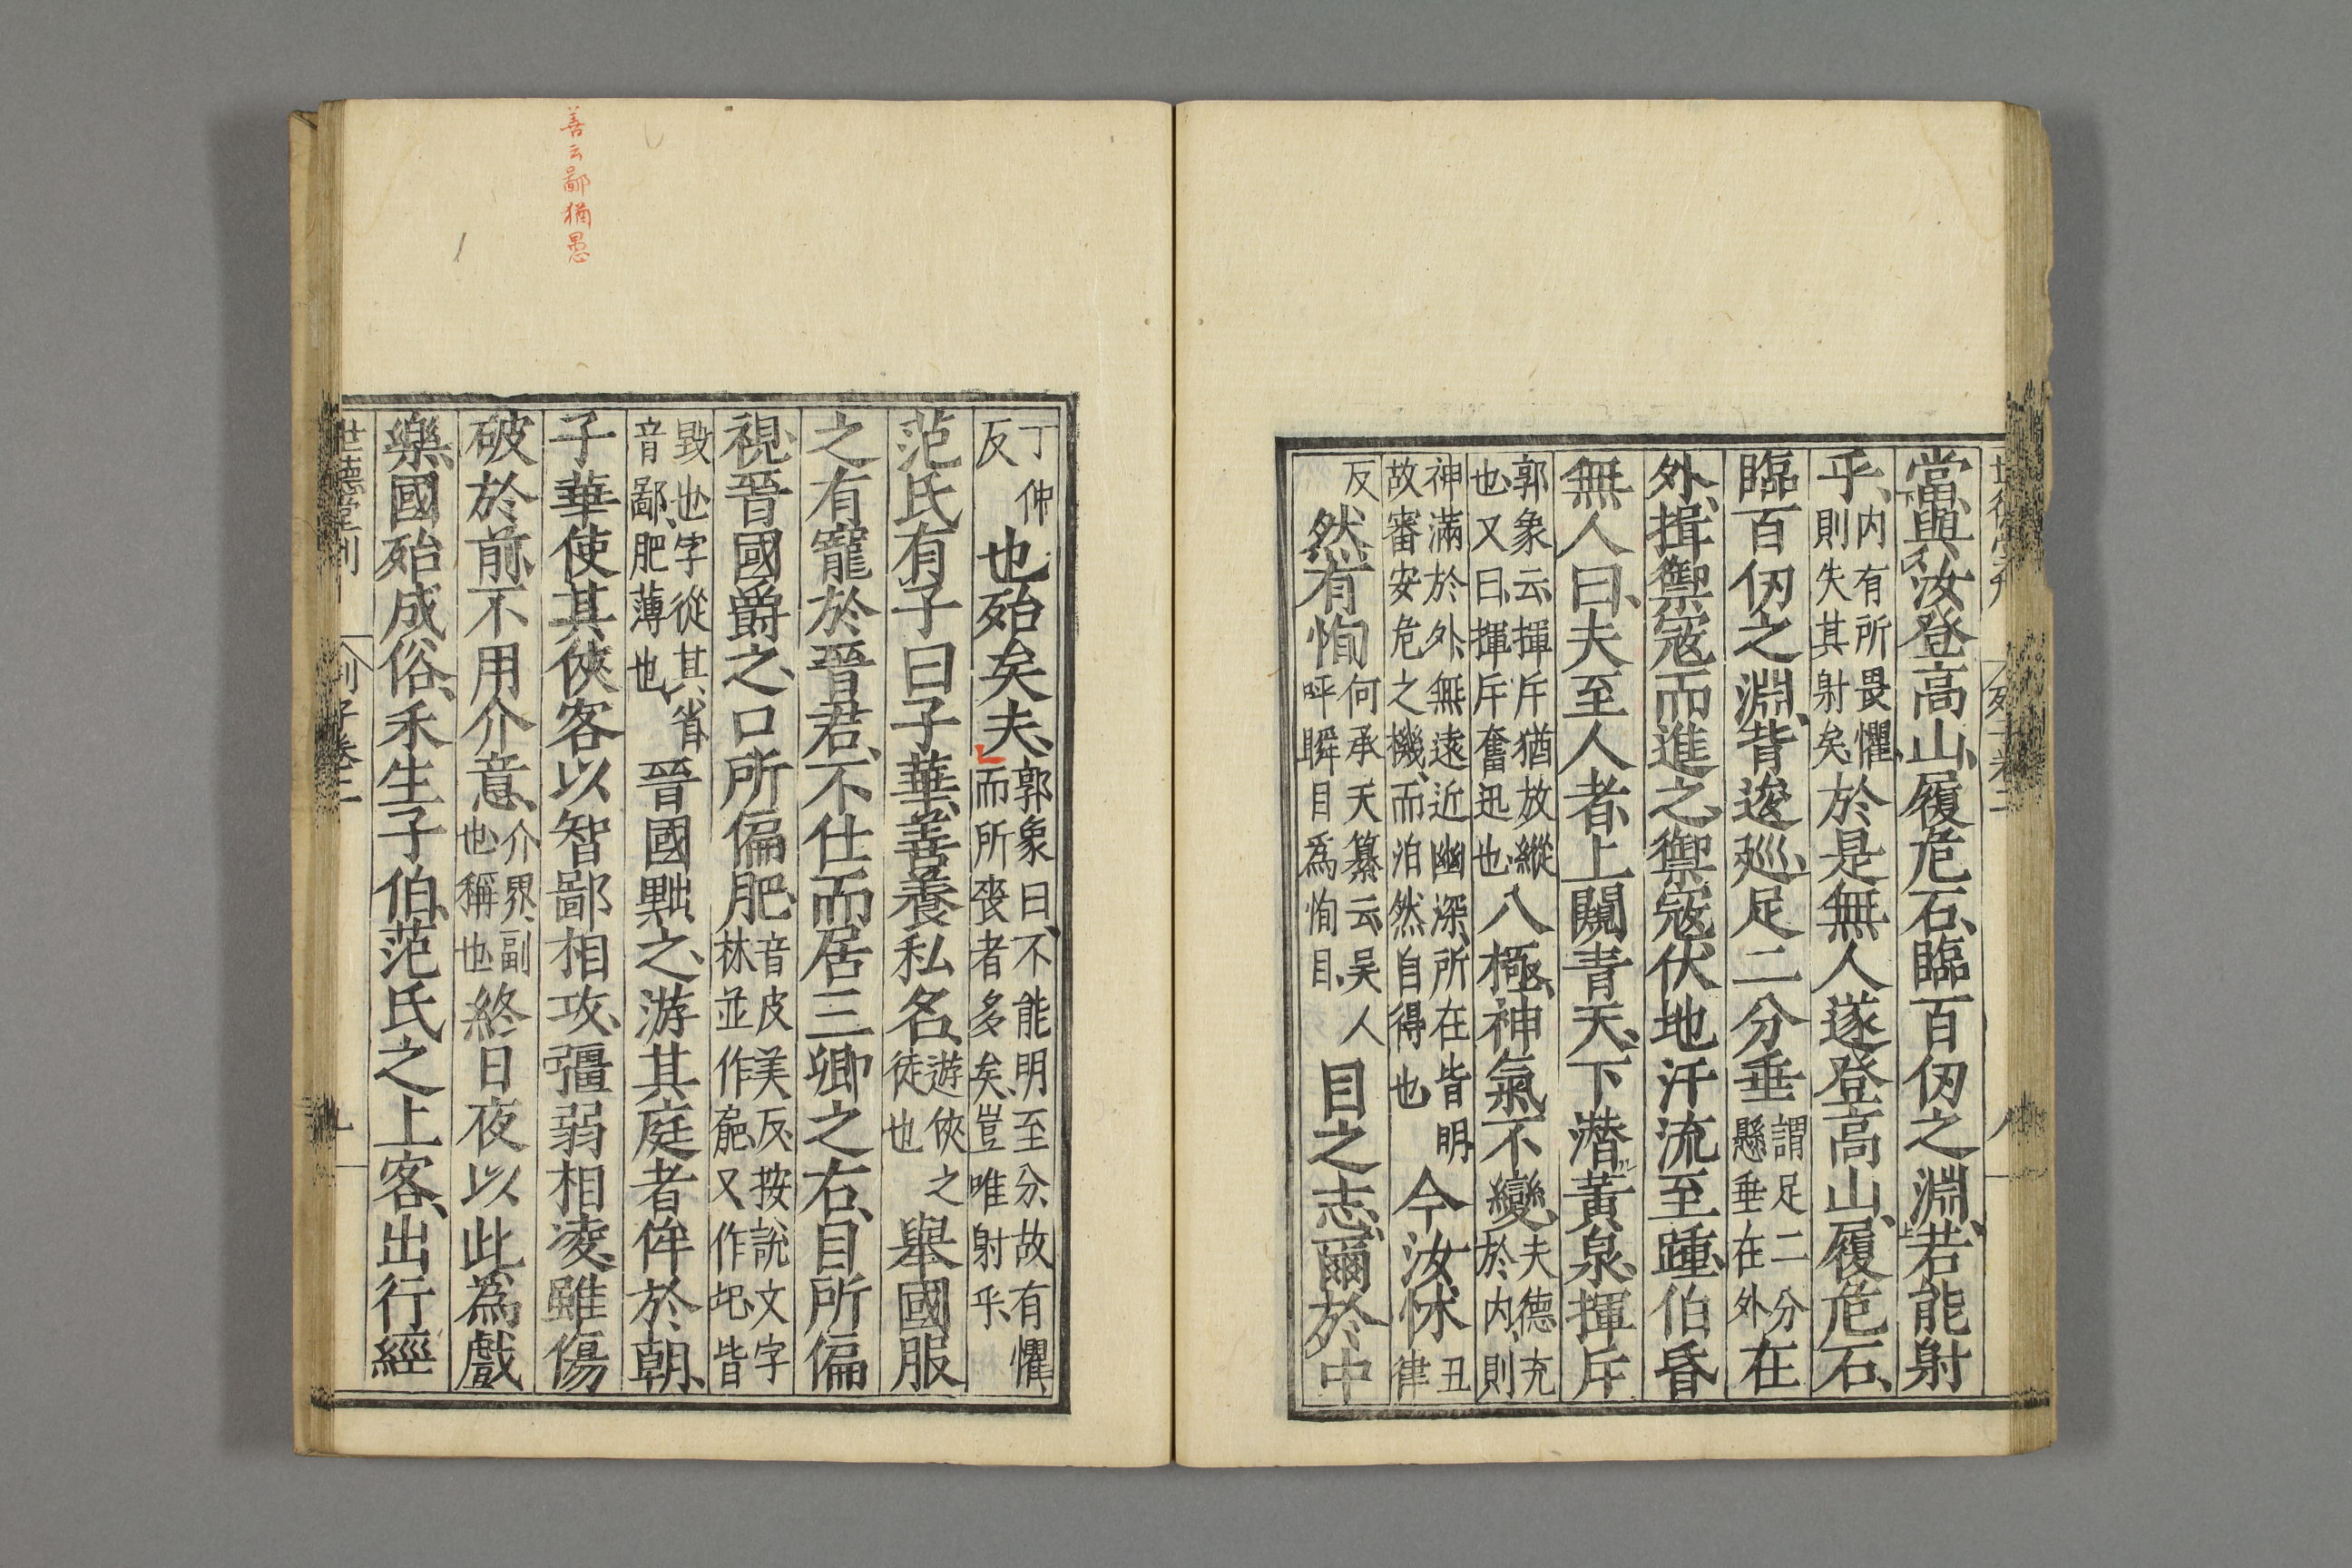 世德堂刊　列子卷二　八
當與汝登高山、履危石、臨百仞之淵、若能射
乎、内有所畏懼、則失其射矣、於是無人遂登高山、履危石、
臨百仞之淵、背逡巡、足二分垂謂足二分懸垂在外在
外、揖禦寇而進之、禦寇伏地汗流至踵、伯昏
無人曰、夫至人者、上闚青天、下潜黃泉、揮斥
郭象云、揮斥猶放縱也、又曰、揮斥奮迅也、八極、神氣不變、夫德充於内、則
神滿於外、無遠近幽深、所在皆明、故審安危之機、而泊然自得也今汝怵丑律
反然有恂何承天纂云、吴人呼瞬目爲恂目、目之志、爾於中
丁仲反也殆矣夫、郭象曰、不能明至分、故有懼、而所丧者多矣、豈唯射乎、
范氏有子曰子華、善養私名、遊俠之徒也舉國服
之有寵於晉君、不仕而居三卿之右、目所偏
視、晉國爵之、口所偏肥、音皮美反、按說文字林並作𡿯、又作圮、皆
毀也、字從其、省音鄙、肥薄也、晉國黜之、游其庭者侔於朝、
子華使其俠客以智鄙相攻、彊弱相凌、雖傷
破於前、不用介意、介界、副也、稱也終日夜以此為戲
樂、國殆成俗、禾生子伯、范氏之上客、出行經
世德堂刊　列子卷二　九
善云鄙猶愚